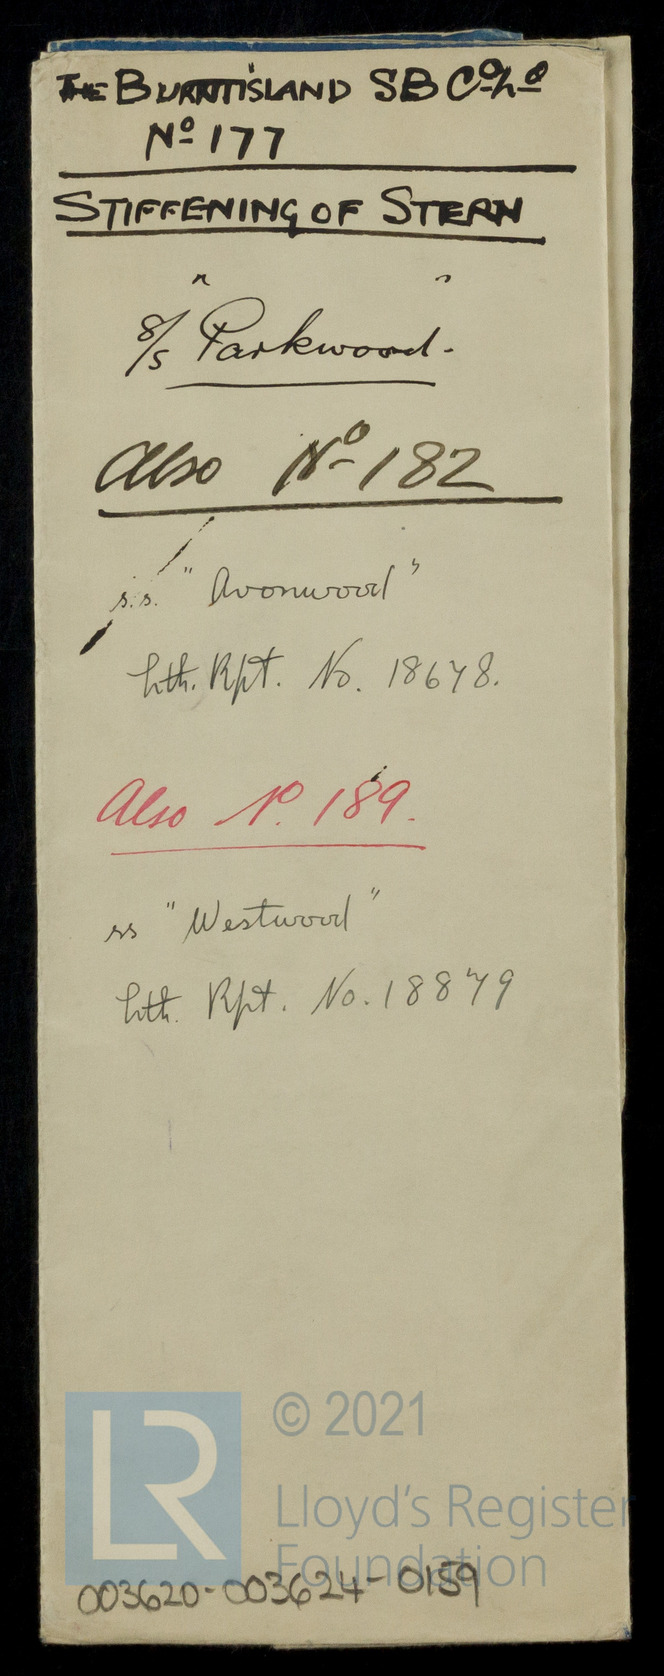 THE BURNTISLAND SB Co Ld
No 177
STIFFENING OF STERN
S/S "Parkwood".
Also No 182
s.s. "Avonwood"
Lth. Rpt. No. 18678.
Also No. 189.
ss "Westwood"
Lth. Rpt. No. 18879
LR
© 2021
Lloyd's Register
Foundation
003620-003624-0159